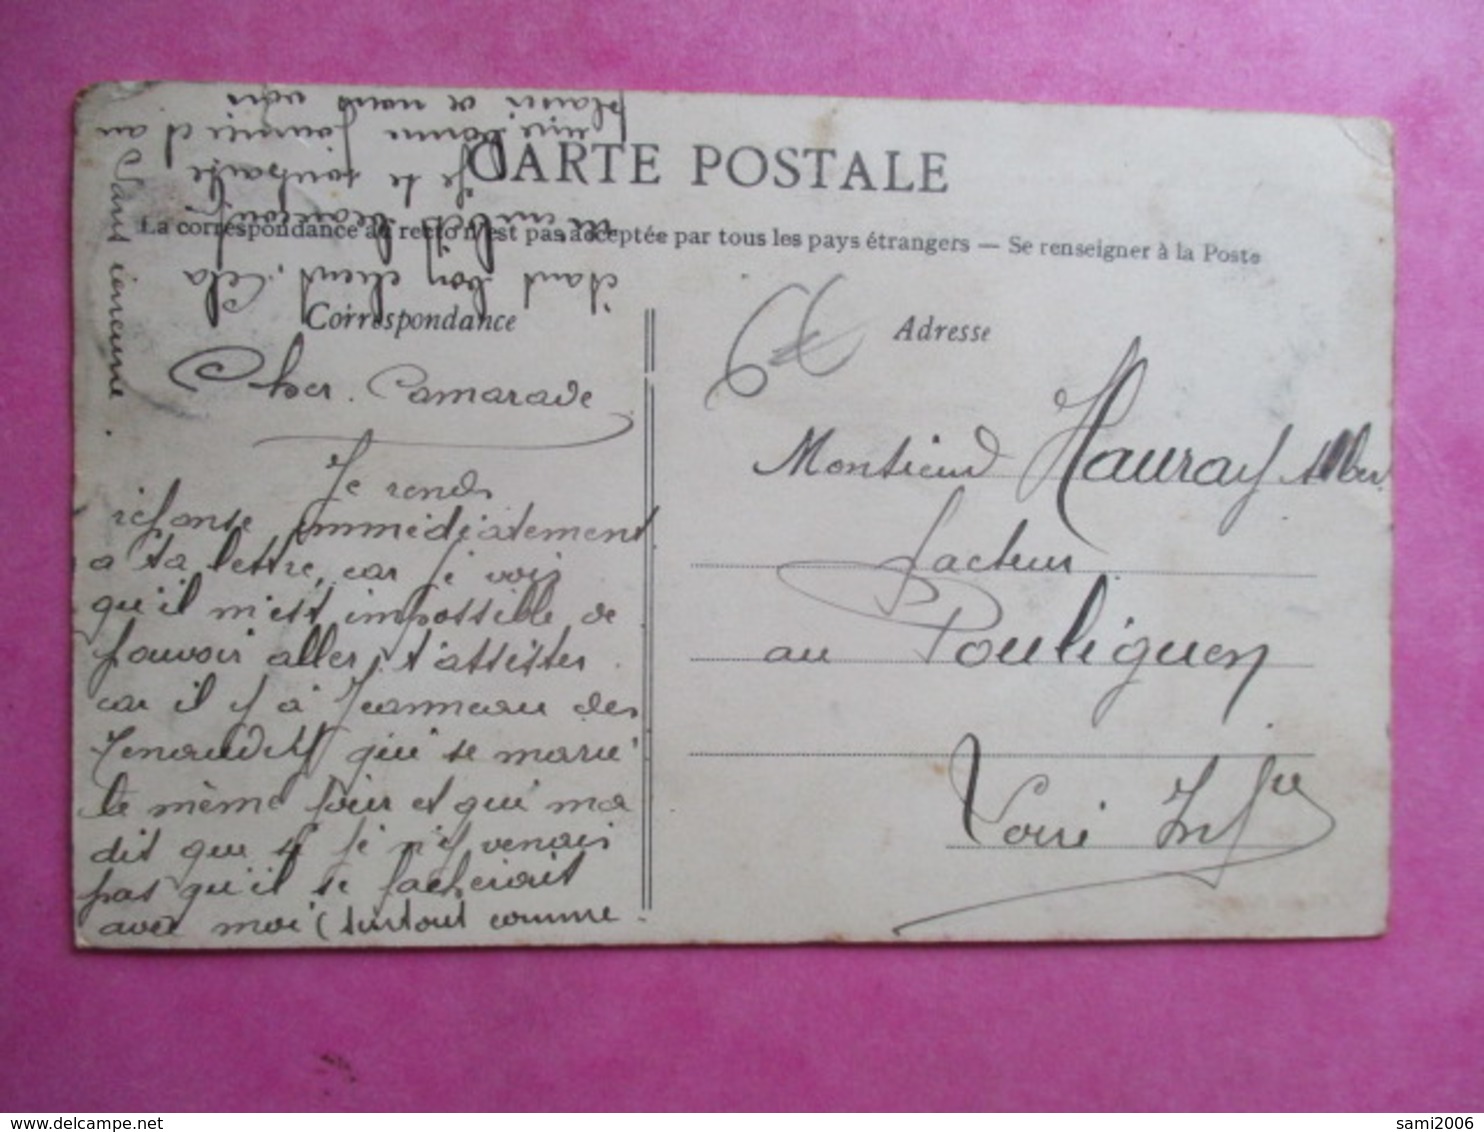 CARTE POSTALE
La correspondance au recto n'est pas acceptée par tous les pays étrangers — Se renseigner à la Poste
Correspondance
Cher Camarade
Je rends
réponse immédiatement
a ta lettre, car je vois
qu'il m'est impossible de
pouvoir aller t'assister
car il y à Jeanneau des
qui se marie
le même jour et qui ma
dit que si je n'y venais
pas qu'il se facherait
avec moi (surtout comme
étant bon client. Cela
m'embête beaucoup
Je te souhaite
une bonne journée et au
plaisir de nous voir
Adresse
Monsieur Hauray Alber
facteur
au Pouliguen
Loire Infre
sami2006
www.delcampe.net